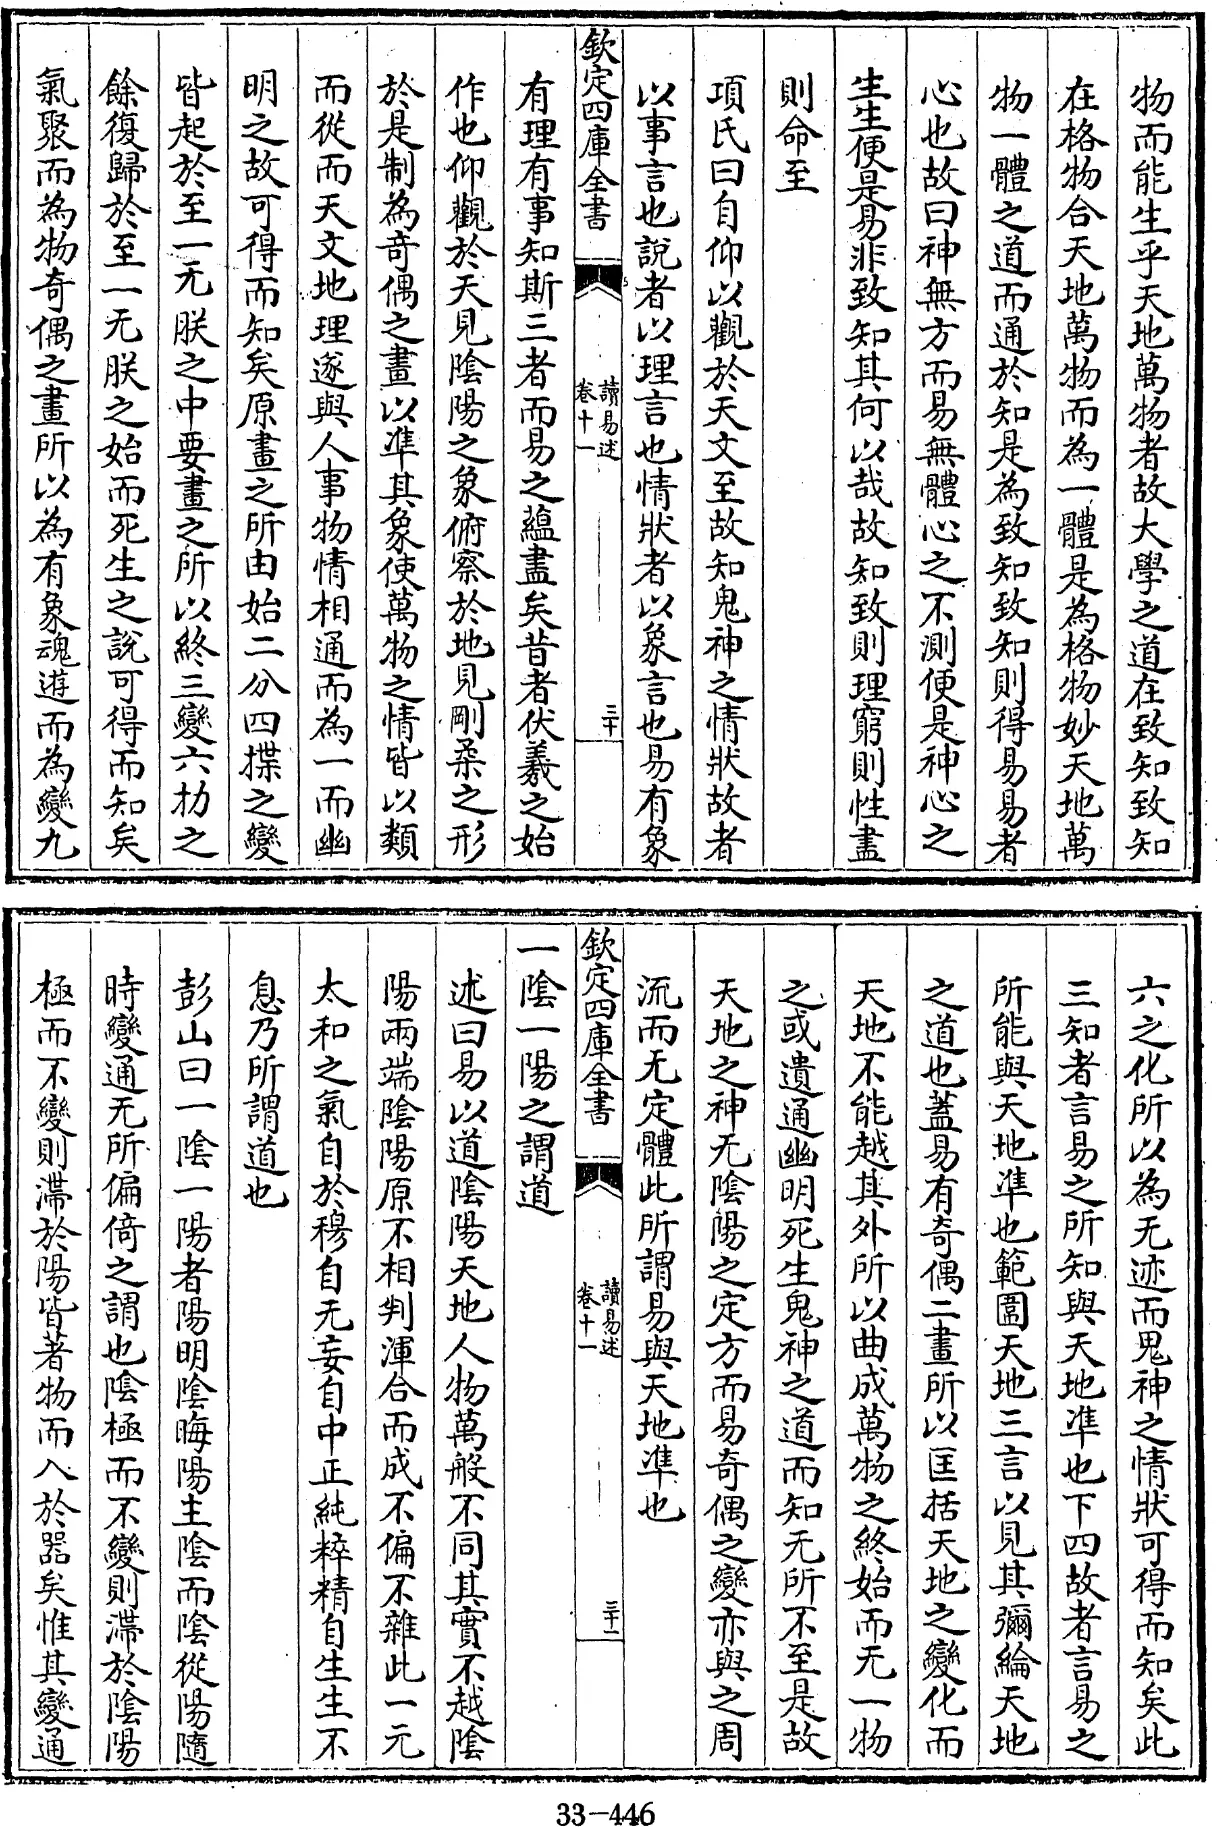 物而能生乎天地萬物者故大學之道在致知致知
在格物合天地萬物而為一體是為格物妙天地萬
物一體之道而通於知是為致知致知則得易易者
心也故曰神無方而易無體心之不測便是神心之
生生便是易非致知其何以哉故知致則理窮則性盡
則命至
項氏曰自仰以觀於天文至故知鬼神之情狀故者
以事言也說者以理言也情狀者以象言也易有象
欽定四庫全書
讀易述
卷十一
三十
有理有事知斯三者而易之蘊盡矣昔者伏羲之始
作也仰觀於天見陰陽之象俯察於地見剛柔之形
於是制為奇偶之畫以準其象使萬物之情皆以類
而從而天文地理遂與人事物情相通而為一而幽
明之故可得而知矣原畫之所由始二分四揲之變
皆起於至一无朕之中要畫之所以終三變六扐之
餘復歸於至一无朕之始而死生之說可得而知矣
氣聚而為物奇偶之畫所以為有象魂遊而為變九
六之化所以為无迹而鬼神之情狀可得而知矣此
三知者言易之所知與天地準也下四故者言易之
所能與天地準也範圍天地三言以見其彌綸天地
之道也蓋易有奇偶二畫所以匡括天地之變化而
天地不能越其外所以曲成萬物之終始而无一物
之或遺通幽明死生鬼神之道而知无所不至是故
天地之神无陰陽之定方而易奇偶之變亦與之周
流而无定體此所謂易與天地準也
欽定四庫全書
讀易述
卷十一
三十一
一陰一陽之謂道
述曰易以道陰陽天地人物萬般不同其實不越陰
陽兩端陰陽原不相判渾合而成不偏不雜此一元
太和之氣自於穆自无妄自中正純粹精自生生不
息乃所謂道也
彭山曰一陰一陽者陽明陰晦陽主陰而陰從陽隨
時變通无所偏倚之謂也陰極而不變則滯於陰陽
極而不變則滯於陽皆著物而入於器矣惟其變通
33-446